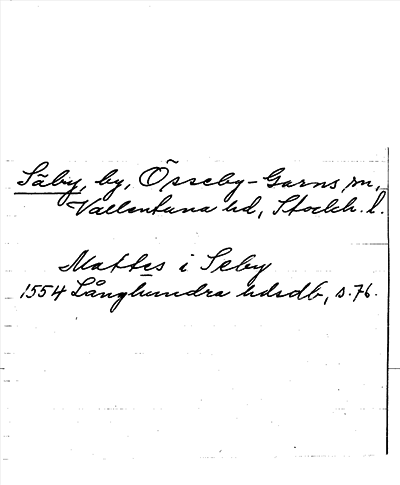 Säby, by, Össeby-Garns sn,
Vallentuna hd, Stockh. l.
Mattes i Seby
1554 Långhundra hdsdb, s. 76.